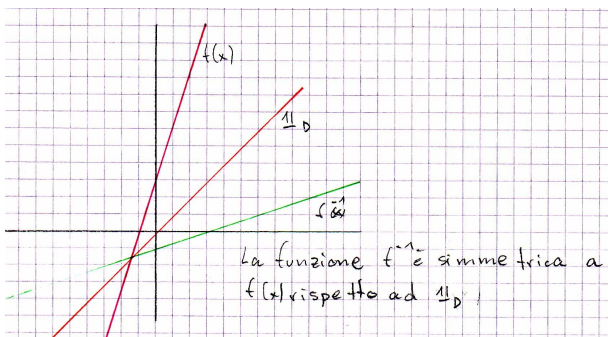 f(x)
𝟙_D
f⁻¹(x)
La funzione f⁻¹ è simmetrica a
f(x) rispetto ad 𝟙_D